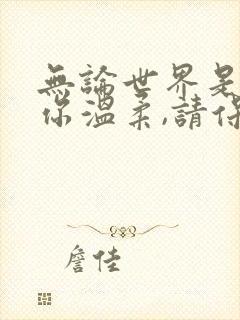 無論世界是
你溫柔,請保
詹佳